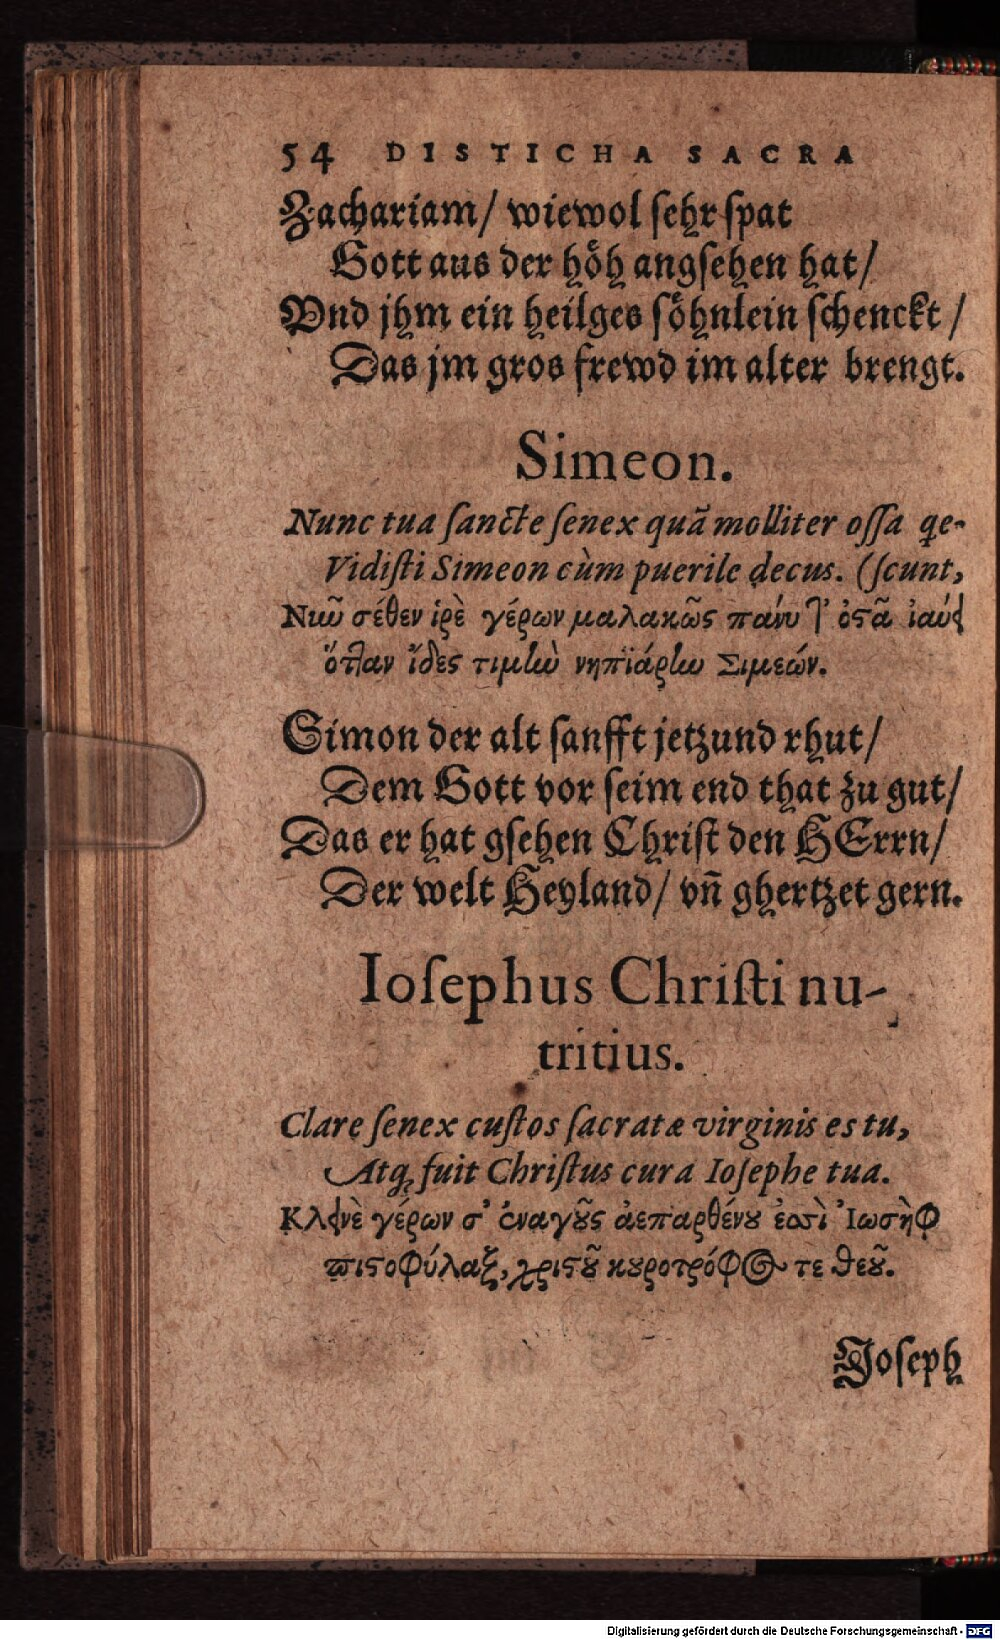 54 DISTICHA SACRA
Zachariam/ wiewol sehr spat
Gott aus der höh angsehen hat/
Vnd jhm ein heilges söhnlein schenckt/
Das jm gros frewd im alter brengt.
Simeon.
Nunc tua sancte senex quã molliter ossa qe-
Vidisti Simeon cùm puerile decus. (scunt,
Νῦν σέθεν ἱρὲ γέρων μαλακῶς πάνυ τ' ὀςᾶ
ὅτταν ἴδες τιμὼ νηπϊάρχω Σιμεών.
Simon der alt sanfft jetzund rhut/
Dem Gott vor seim end that zu gut/
Das er hat gsehen Christ den HErrn/
Der welt Heyland/ vñ ghertzet gern.
Iosephus Christi nu-
tritius.
Clare senex custos sacratæ virginis es tu,
Atq; fuit Christus cura Iosephe tua.
Κλεινὲ γέρων σ' ἐναγοῦς ἀεπαρθένου ἐσσὶ Ἰωσὴφ
πιστοφύλαξ, χριστοῦ κουροτρόφος τε θεοῦ.
Joseph
Digitalisierung gefördert durch die Deutsche Forschungsgemeinschaft - DFG